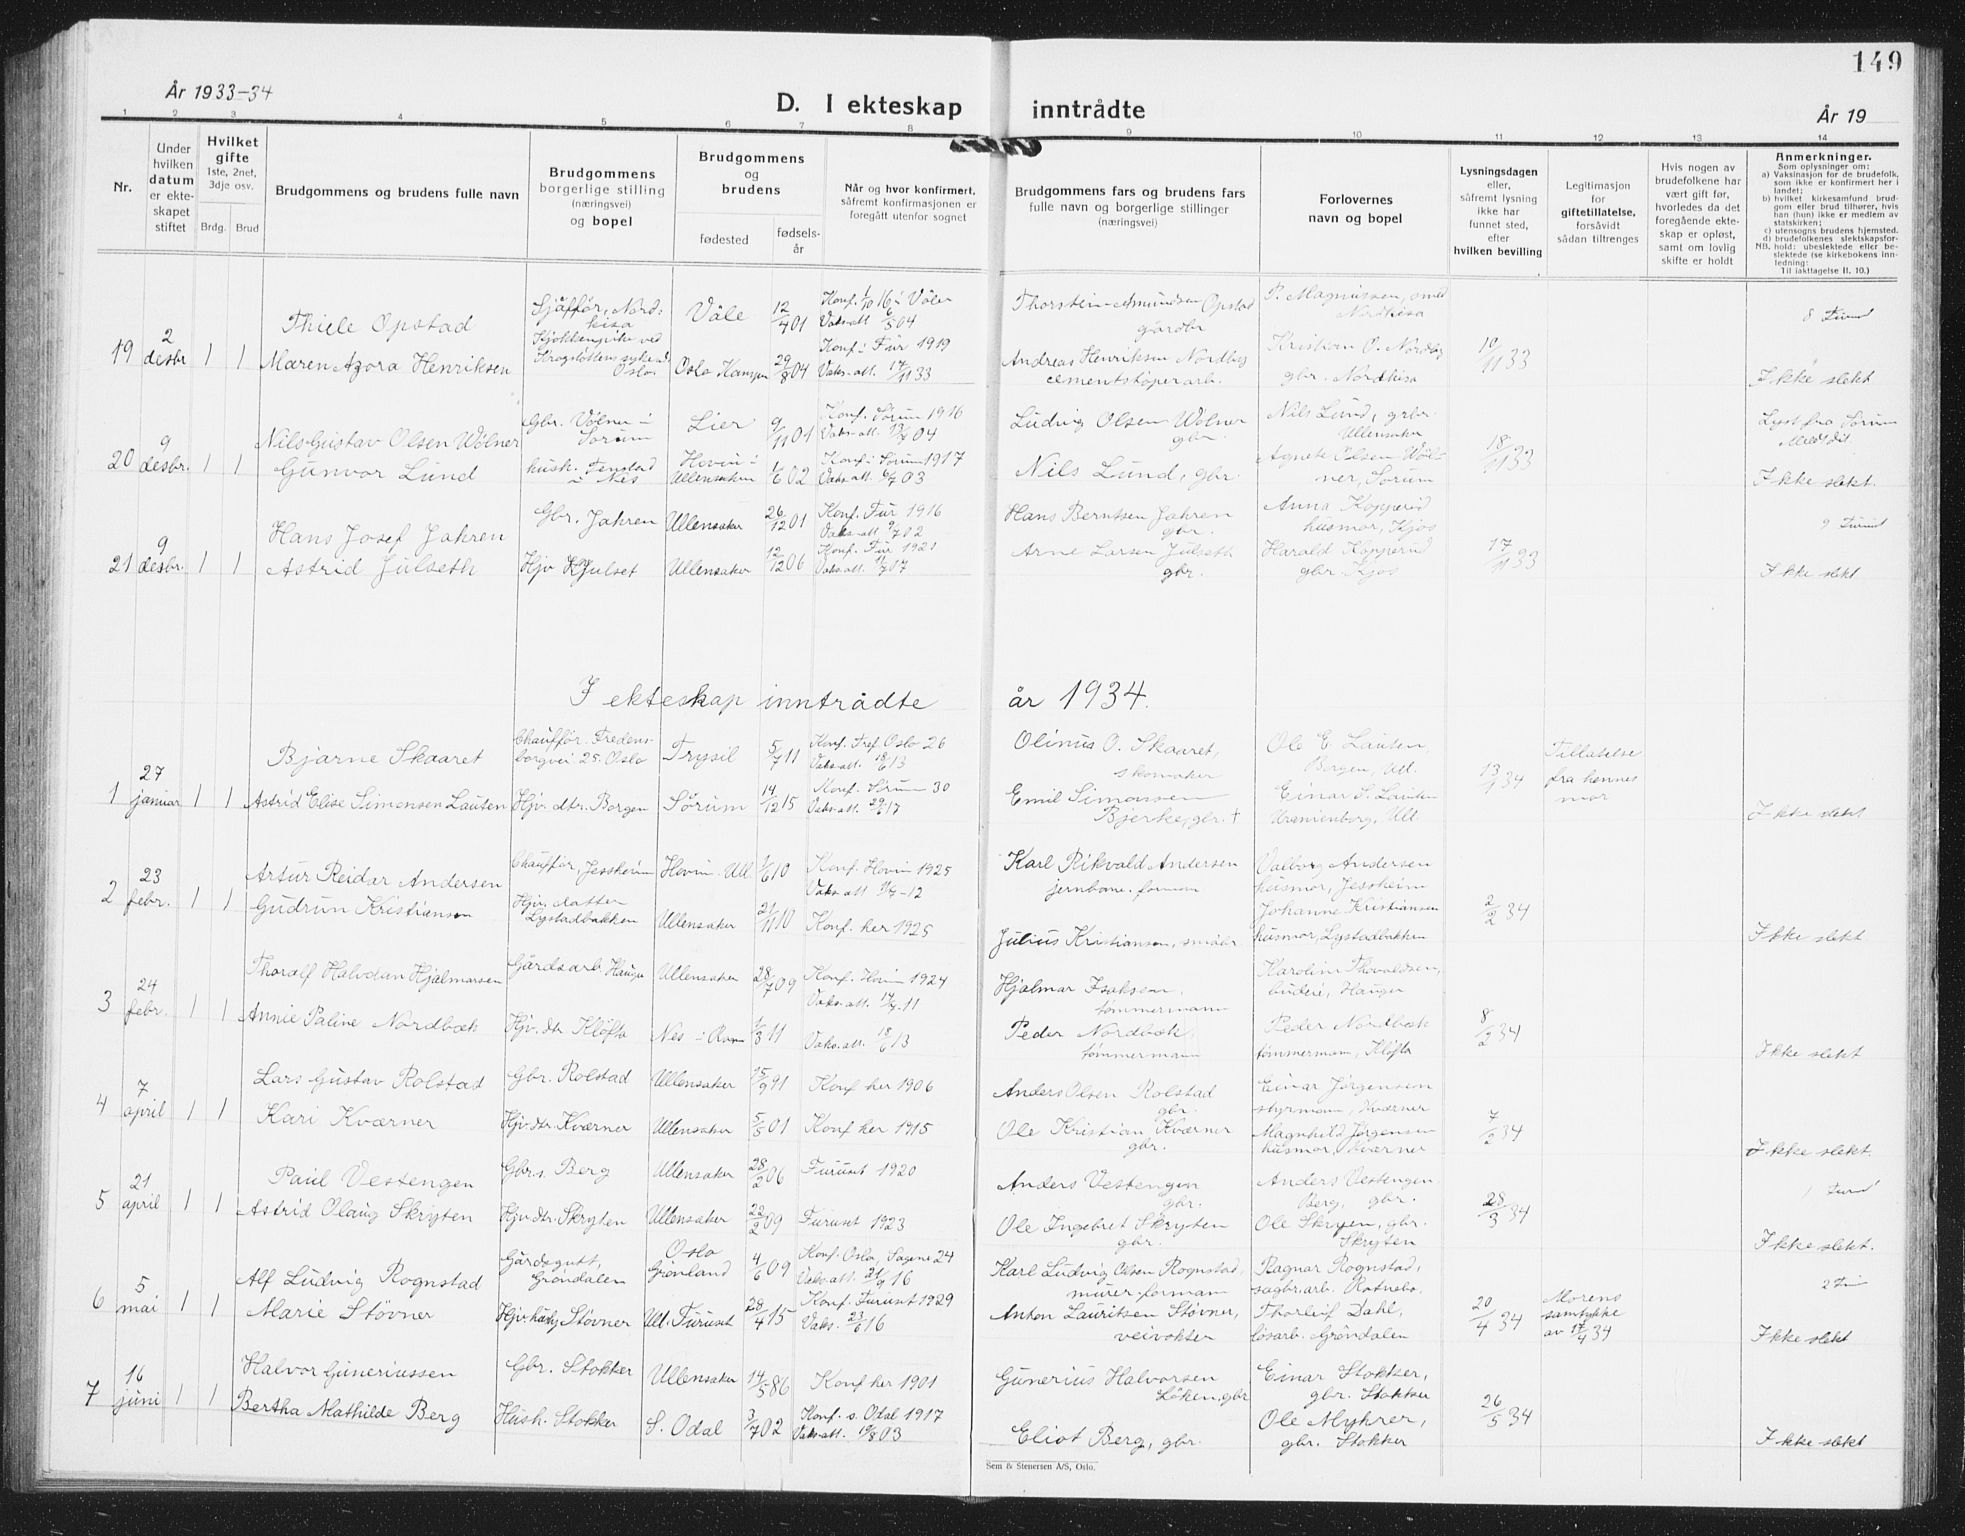 149
År 1933-34
D. I ekteskap inntrådte
År 19
1 2 3 4 5 6 7 8 9 10 11 12 13 14
Nr.
Under
hvilken
datum
er ekte-
skapet
stiftet
Hvilket
gifte
1ste, 2net,
3dje osv.
Brdg. Brud
Brudgommens og brudens fulle navn
Brudgommens
borgerlige stilling
(næringsvei)
og bopel
Brudgommens
og
brudens
fødested
fødsels-
år
Når og hvor konfirmert,
såfremt konfirmasjonen er
foregått utenfor sognet
Brudgommens fars og brudens fars
fulle navn og borgerlige stillinger
(næringsvei)
Forlovernes
navn og bopel
Lysningsdagen
eller,
såfremt lysning
ikke har
funnet sted,
efter
hvilken bevilling
Legitimasjon
for
giftetillatelse,
forsåvidt
sådan tiltrenges
Hvis nogen av
brudefolkene har
vært gift før,
hvorledes da det
foregående ekte-
skap er opløst,
samt om lovlig
skifte er holdt
Anmerkninger.
Som oplysninger om:
a) Vaksinasjon for de brudefolk,
som ikke er konfirmert her i
landet;
b) hvilket kirkesamfund brud-
gom eller brud tilhører, hvis
han (hun) ikke er medlem av
statskirken;
c) utensogns brudens hjemsted.
d) brudefolkenes slektskapsfor-
NB. hold: ubeslektede eller be-
slektede (se kirkebokens inn-
ledning:
Til iakttagelse II. 10.)
19 2 desbr 1 1
Thiele Opstad
Sjåffør, Nord-
kisa
Våle 12/4 01
Konf. 1/10 16 i Våler
Vaks. att 6/5 04
Thorstein Amundsen Opstad
gårdbr
P. Magnussen, smed
Nordkisa
Maren Azora Henriksen
Kjøkkenpike ved
Oslo
29/8 04
Konf. i Fur 1919
Vaks. att. 17/11 33
Andreas Henriksen Nordby
cementstøperarb.
Kristian O. Nordby
gbr. Nordkisa
10/11 33
Ikke slekt
20 9 desbr. 1 1
Nils Gustav Olsen Wølner
Gbr. Vølner i
Sørum
Lier 9/11 01
Konf. Sørum 1916
Vaks. att. 13/7 04
Ludvig Olsen Wølner
gbr.
Nils Lund, grbr.
Ullensaker
18/11 33
Lyst fra Sørum
Gunvor Lund
hush. Fenstad
i Nes
Hovin i
Ullensaker
1/6 02
Konf. i Sørum 1917
Vaks. att. 6/7 03
Nils Lund, gbr.
Agnete Olsen Wøl-
ner, Sørum
Ikke slekt.
21 9 desbr. 1 1
Hans Josef Jahren
Gbr. Jahren Ullensaker 26/12 01
Konf. Fur 1916
Vaks. att 9/7 02
Hans Berntsen Jahren
gbr.
Anna Kopperud
husmor, Kjos
Astrid Julseth
Hjv Julset Ullensaker 12/12 06
Konf. Fur 1921
Vaks. att. 11/7 07
Arne Larsen Julseth
gbr.
Harald Kopperud
gbr. Kjos
17/11 33
Ikke slekt
I ekteskap inntrådte år 1934.
1 27 januar 1 1
Bjarne Skaaret
Chauffør. Fredens-
borgvei 25. Oslo
Trysil 5/7 11
Konf. Tref. Oslo 26
Vaks. att. 18/6 13
Olinus O. Skaaret,
skomaker
Ole E. Lauten,
Borgen, Ull.
13/1 34
Tillatelse
fra hennes
mor
Astrid Elise Simonsen Lauten
Hjv. dtr. Borgen
Sørum 14/12 15
Konf. Sørum 30
Vaks. att. 29/6 17
Emil Simonsen
Bjerke, gbr. +
Einar S. Lauten
Uranienborg, Ull.
Ikke slekt
2 23 febr. 1 1
Artur Reidar Andersen
Chauffør, Jessheim
Hovin. Ull 1/6 10
Konf. Hovin 1925
Karl Rikvald Andersen
jernbane. formann
Valborg Andersen
husmor, Jessheim
Gudrun Kristiansen
Hjv. datter
Lystadbakken
Ullensaker 21/11 10
Konf. her 1925
Julius Kristiansen, småbr
Johanne Kristiansen
husmor, Lystadbakken
2/2 34
Ikke slekt.
3 24 febr. 1 1
Thoralf Halvdan Hjalmarsen
Gårdsarb. Hauger
Ullensaker 28/7 09
Konf. Hovin 1924
Vaks. att. 14/7 11
Hjalmar Isaksen,
tømmermann
Karoline Thovaldsen,
budeie, Hauger
Annie Paline Nordbæk
Hjv. dtr Kløfta
Nes i 1/3 11
Vaks. att. 18/6 13
Peder Nordbæk,
tømmermann
Peder Nordbæk
tømmermann, Kløfta
8/2 34
Ikke slekt
4 7 april 1 1
Lars Gustav Rolstad
Gbr. Rolstad Ullensaker 15/9 91
Konf her 1906
Anders Olsen Rolstad
gbr.
Einar Jørgensen
styrmann, Kværner
Kari Kværner
Hjv. dtr. Kværner Ullensaker 5/5 01
Konf her 1915
Ole Kristian Kværner
gbr.
Magnhild Jørgensen
husmor, Kværner
7/2 34
Ikke slekt.
5 21 april 1 1
Paul Vestengen
Gbr.s. Berg Ullensaker 28/2 06
Furuset 1920
Anders Vestengen
gbr.
Anders Vestengen
Berg, gbr.
Astrid Olaug Skryten
Hjv. dtr. Skryten Ullensaker 22/2 09
Furuset 1923
Ole Ingebret Skryten
gbr.
Ole Skryten, gbr.
Skryten
28/3 34
Ikke slekt.
6 5 mai 1 1
Alf Ludvig Rognstad
Gårdsgutt,
Grøndalen
Oslo
Grønland
4/6 09
Konf. Oslo, Sagene 24
Vaks. att. 21/9 16
Karl Ludvig Olsen Rognstad,
murer formann
Ragnar Rognstad,
sagbr. arb. Rotnebo,
Marie Støvner
Støvner Ull. Furuset 28/4 15
Konf. Furuset 1929
Vaks. 23/6 16
Anton Lauritsen Støvner,
veivokter
Thorleif Dahl,
løsarb. Grøndalen
20/4 34
Morens
samtykke
av 17/4 34
Ikke slekt
7 16 juni 1 1
Halvor Guneriussen
Gbr. Stokker Ullensaker 14/5 86
Konf her 1901
Gunerius Halvorsen
Løken. gbr
Einar Stokker,
gbr. Stokker
Bertha Mathilde Berg
Hush. Stokker S. Odal 3/7 02
Konf. s. Odal 1917
Vaks. att. 19/8 03
Eliot Berg, gbr.
Ole Myhrer,
gbr. Stokker
26/5 34
Ikke slekt
Sem & Stenersen A/S, Oslo.